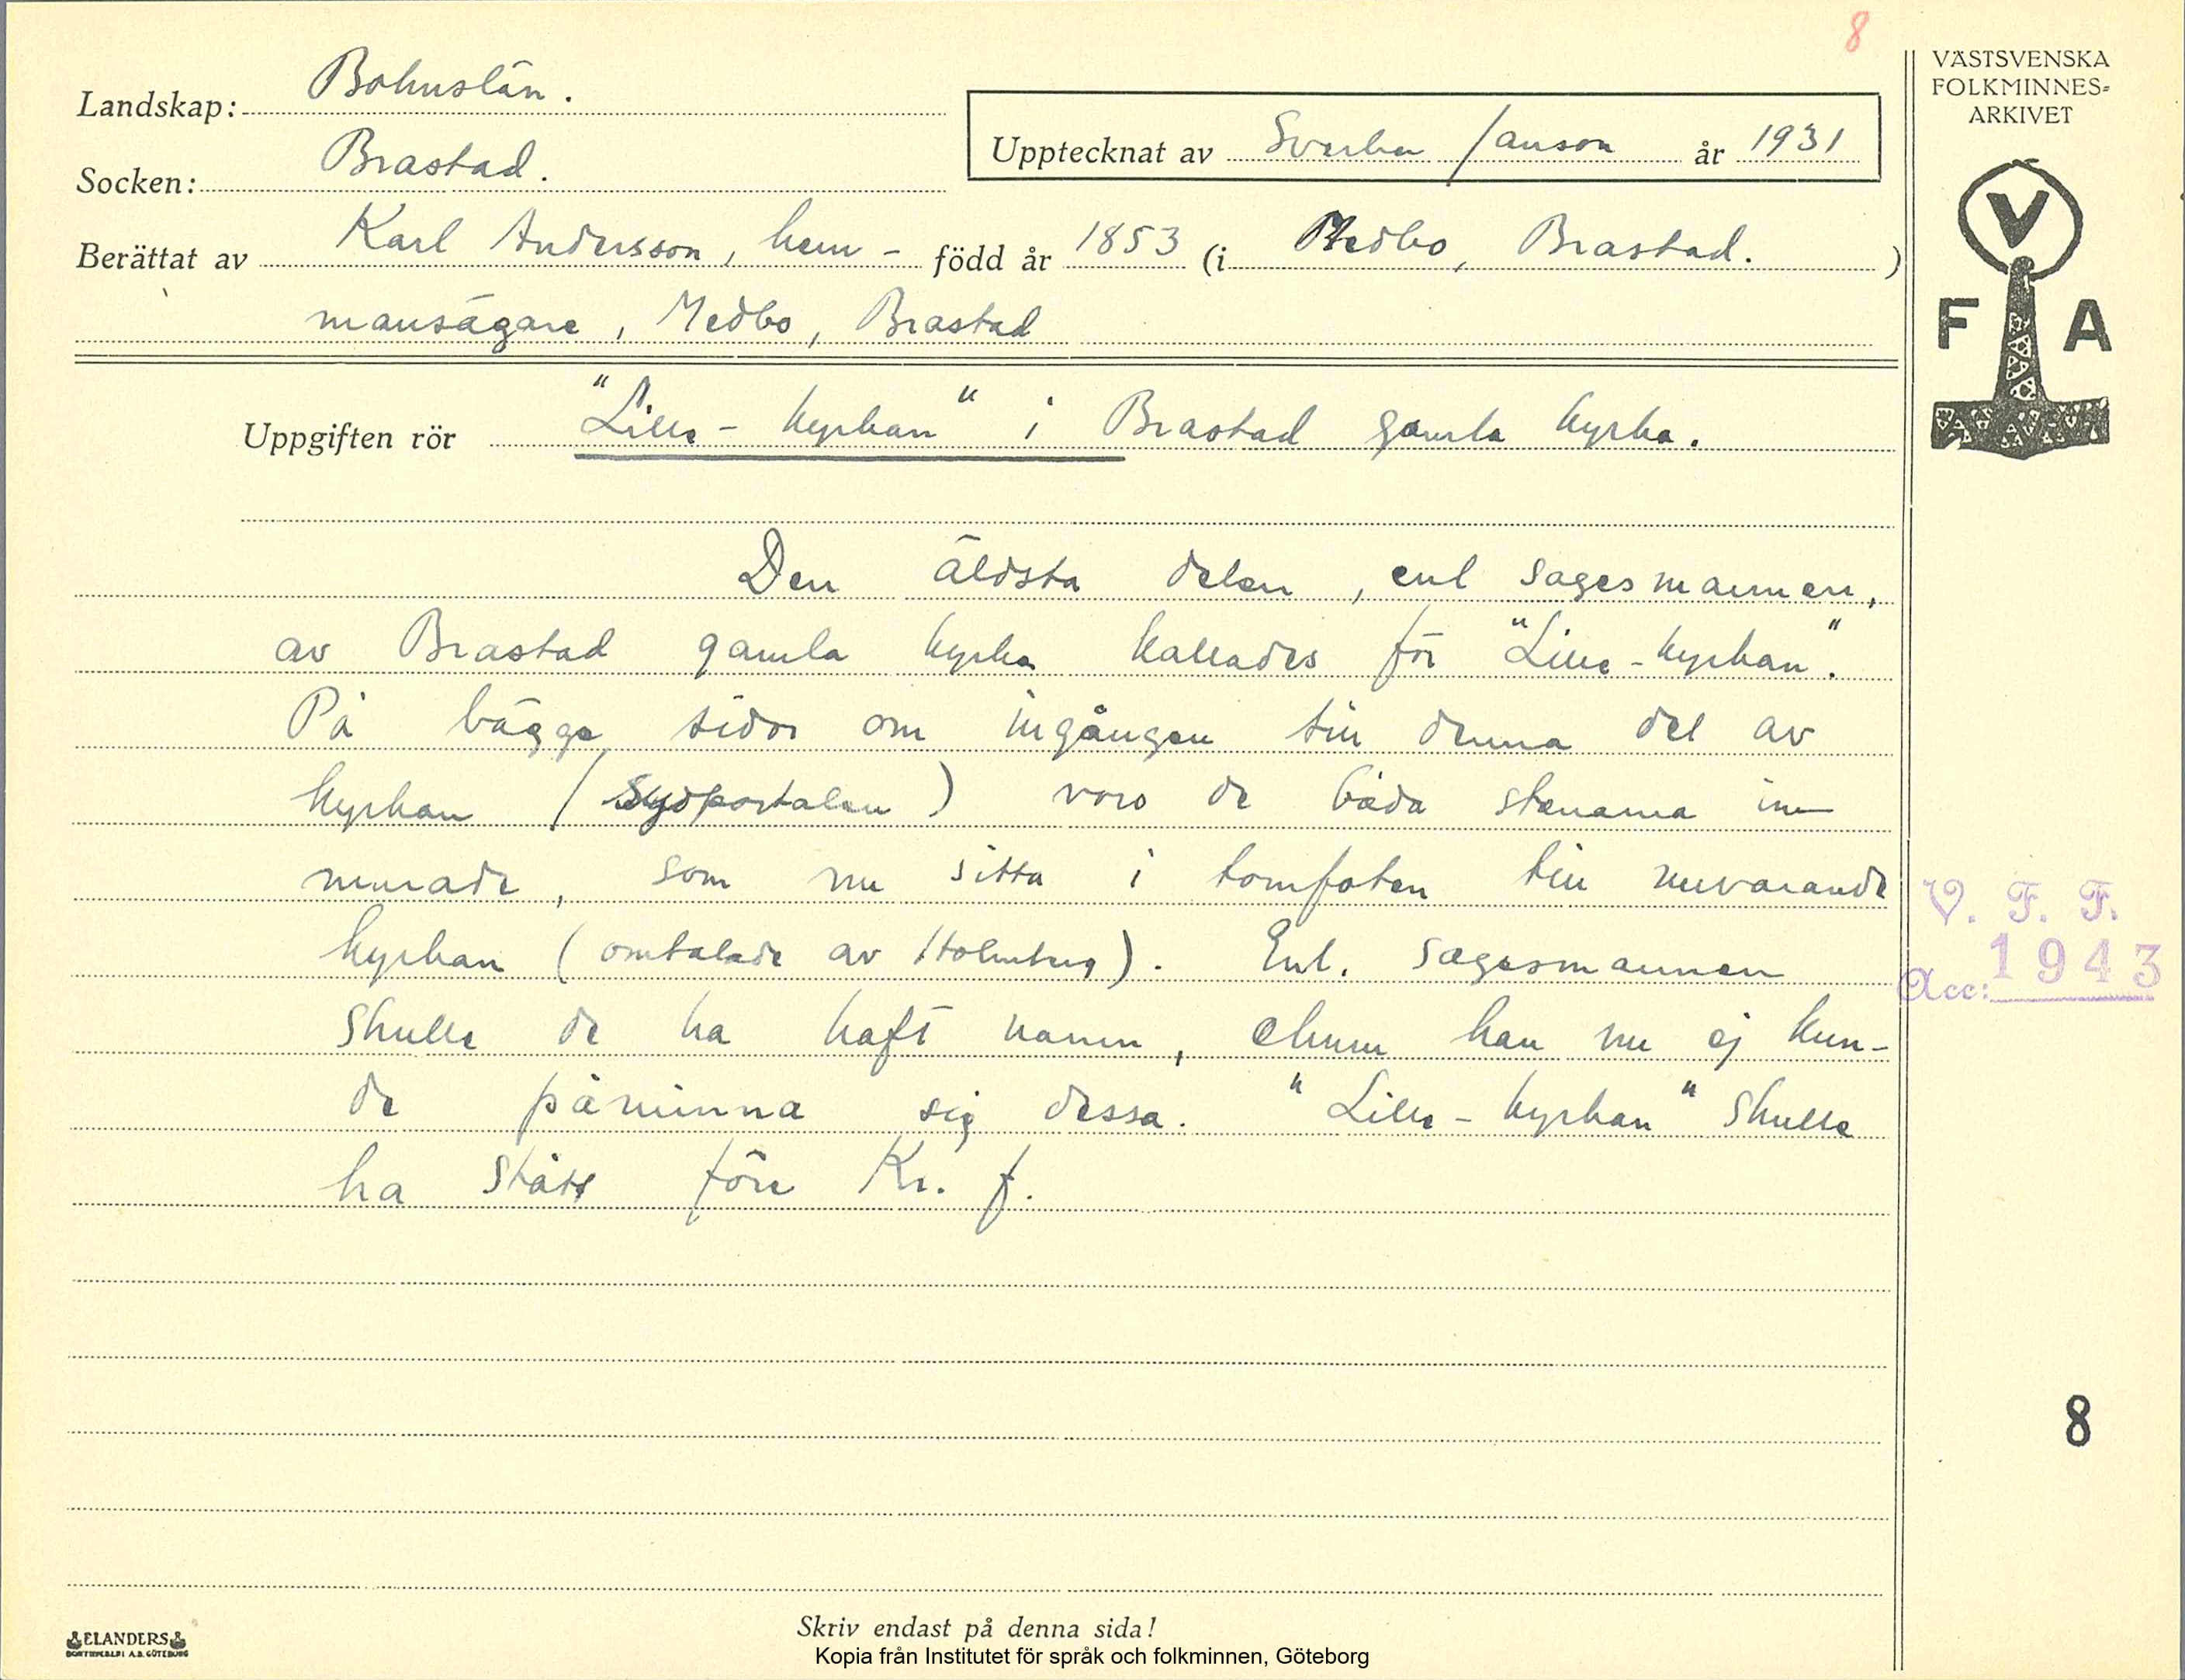 8
VÄSTSVENSKA
FOLKMINNES-
ARKIVET
Landskap: Bohuslän.
Upptecknat av Sverker Janson år 1931
Socken: Brastad.
Berättat av Karl Andersson, hem- född år 1853 (i Medbo, Brastad. )
mansägare, Medbo, Brastad
V
F A
Uppgiften rör "Lille-kyrkan" i Brastad gamla kyrka.
Den äldsta delen, enl sagesmannen,
av Brastad gamla kyrka kallades för "Lille-kyrkan".
På bägge sidor om ingången till denna del av
kyrkan (Sydportalen) voro de båda stenarna in-
murade, som nu sitta i tornfoten till nuvarande
kyrkan (omtalade av Holmberg). Enl. sagesmannen
skulle de ha haft namn, ehuru han nu ej kun-
de påminna sig dessa. "Lille-kyrkan" skulle
ha stått före Kr. f.
V. F. F.
Acc: 1943
8
ELANDERS
BOKTRYCKERI A.B. GÖTEBORG
Skriv endast på denna sida!
Kopia från Institutet för språk och folkminnen, Göteborg